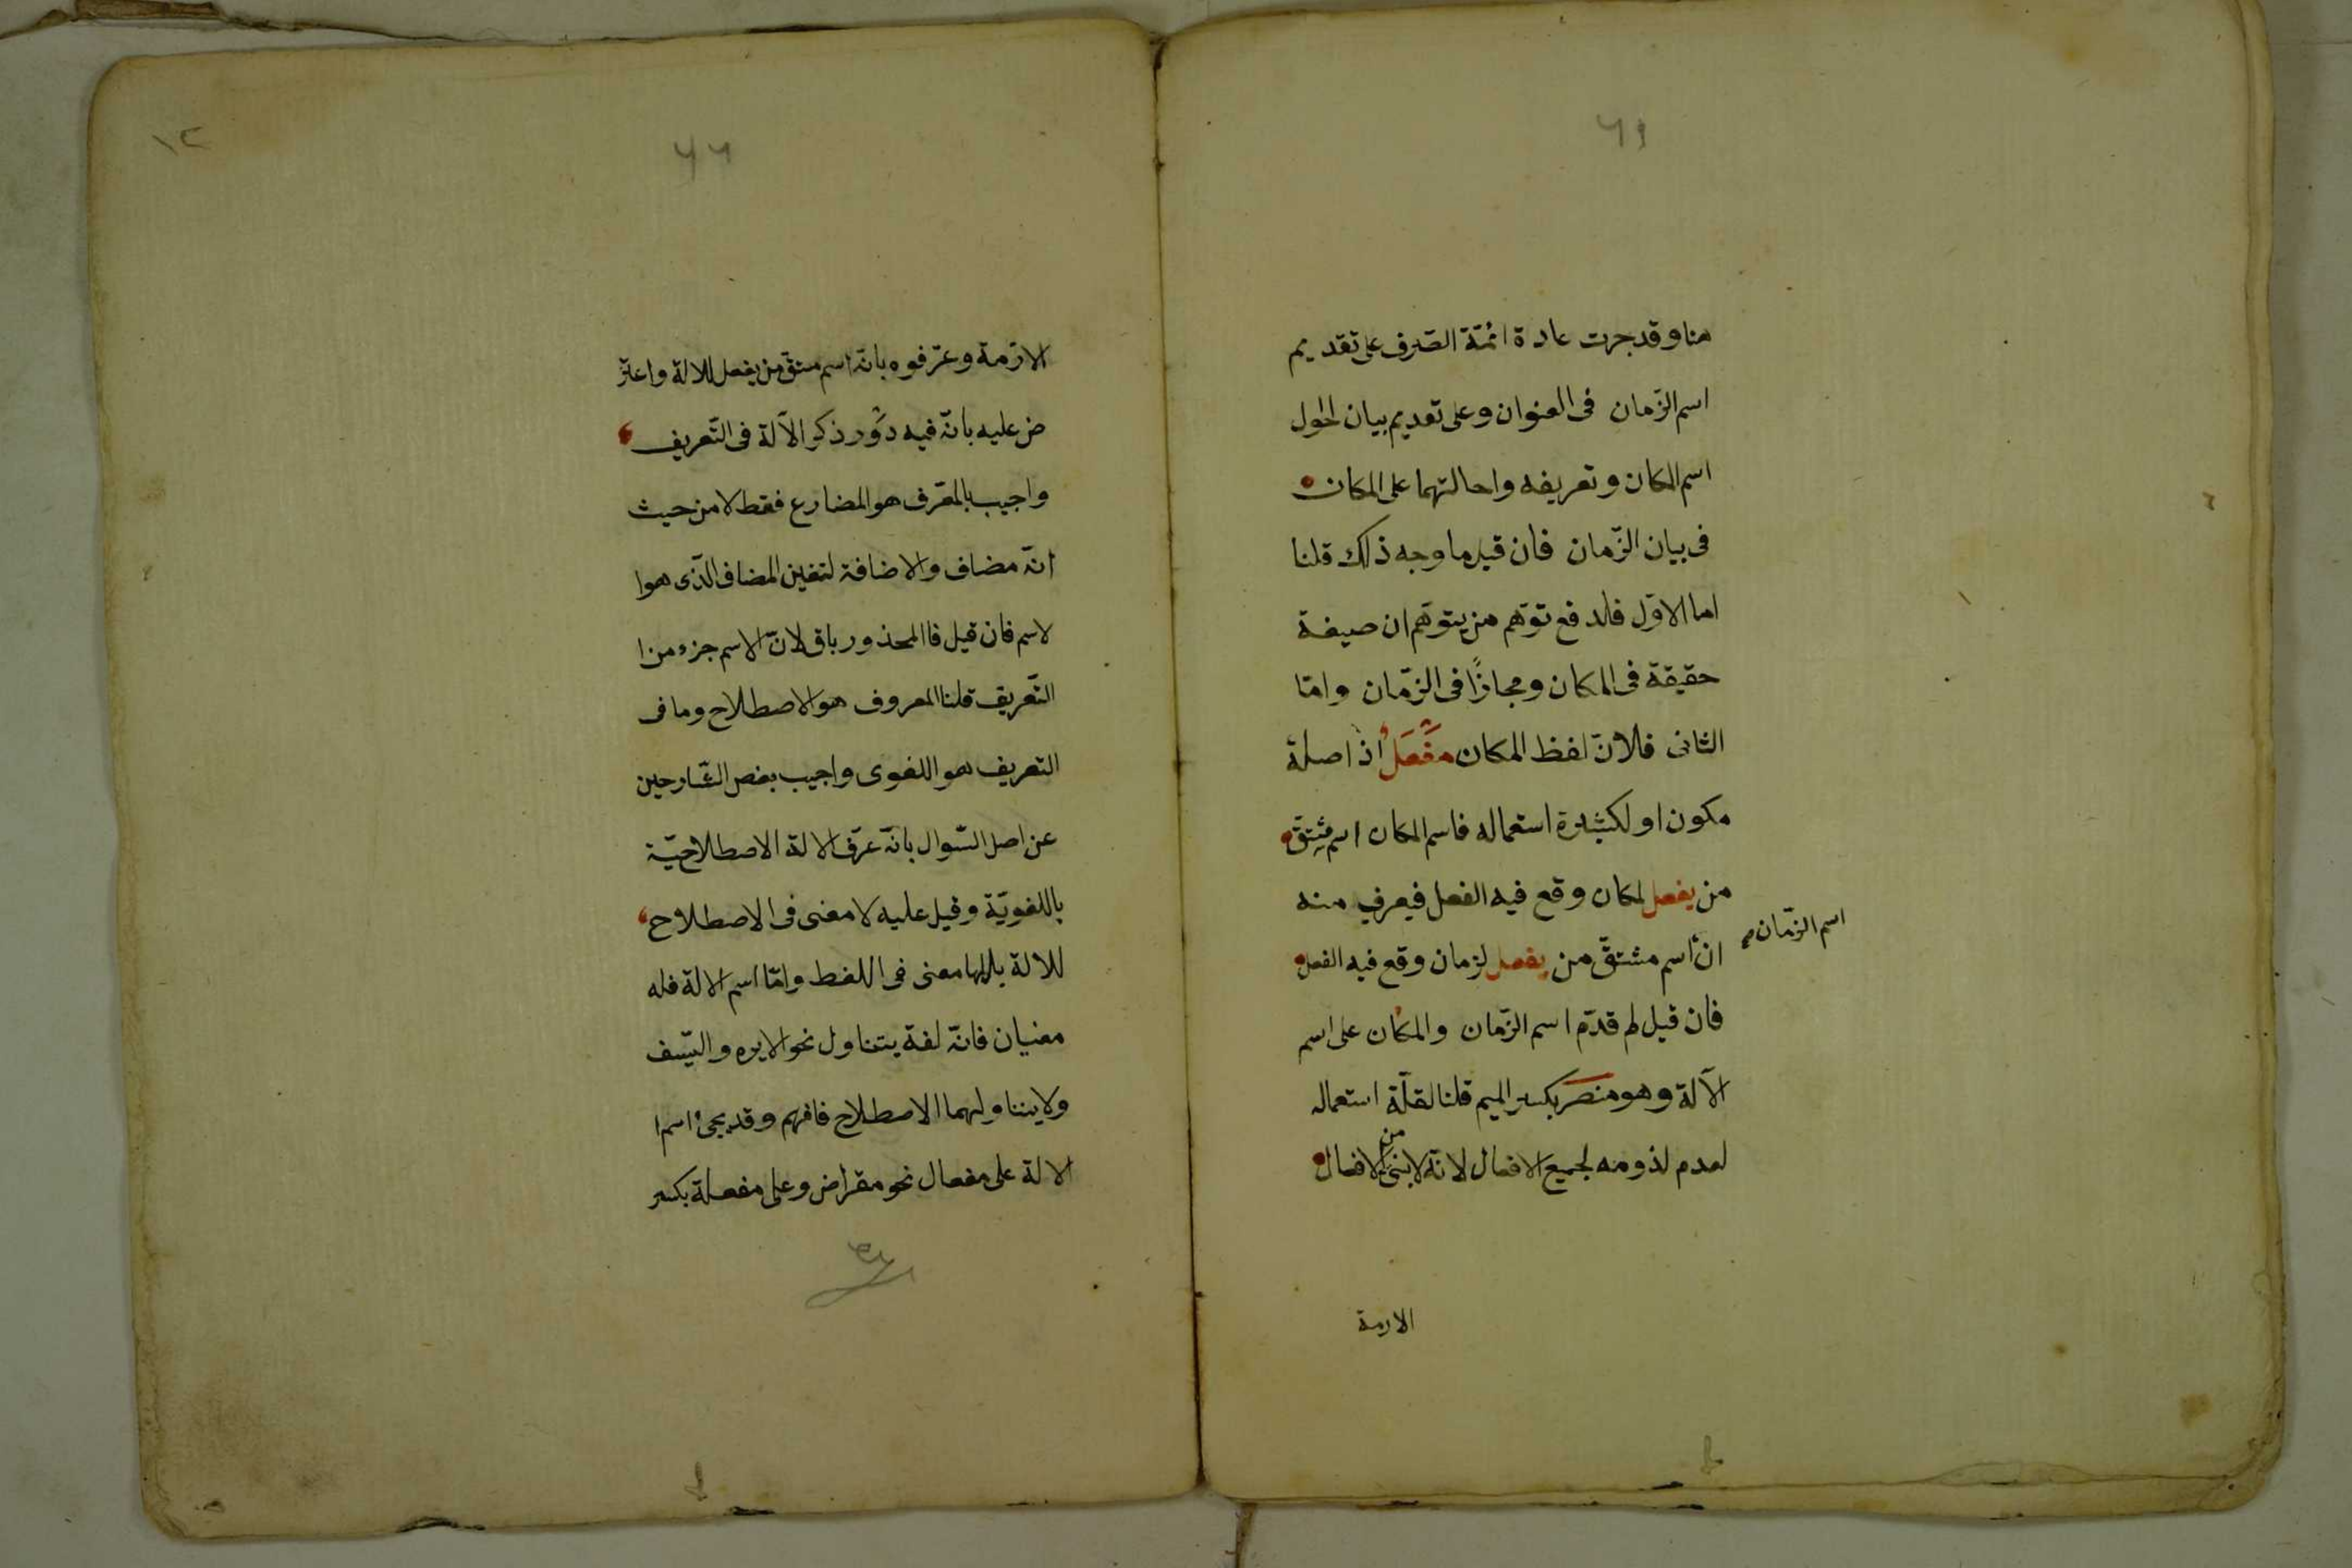 ٦١
هنا وقد جرت عادة ائمّة الصّرف على تقديم
اسم الزّمان فى العنوان وعلى تقديم بيان احول
اسم المكان وتعريفه واحالتهما على المكان
فى بيان الزّمان فان قيل ما وجه ذلك قلنا
اما الاوّل فلدفع توّهم من يتوهّم ان صيغة
حقيقة فى المكان ومجازًا فى الزّمان وامّا
الثانى فلانّ لفظ المكان مَفْعَلُ اذ اصلة
مكون او لكثيرة استعماله فاسم المكان اسم مشتقّ
من يفعل لمكان وقع فيه الفعل فيعرف منه
اسم الزّمان
ان اسم مشتقّ من يفعل لزمان وقع فيه الفعل
فان قيل لم قدّم اسم الزّمان والمكان على اسم
الآلة وهو منصر بكسر الميم قلنا لقلّة استعماله
لعدم لذومه لجميع الافعال لانّه لا يبنى من الافعال
الازمة
١٢
٦٢
الازمة وعرّفوه بانّه اسم مشتقّ من يفعل للالة واعتر
ض عليه بانّه فيه دَوْر ذكر الآلة فى التّعريف
واجيب بالمعّرف هو المضارع فقط لا من حيث
انّه مضاف والاضافة لتعين المضاف الّذى هوا
لاسم فان قيل فاالمحذور باق لانّ الاسم جزء من ا
التّعريف قلنا المعروف هو الاصطلاح وما فى
التعريف هو اللغوى واجيب بعض الشّارحين
عن اصل السّوال بانّه عرّف الالة الاصطلاحيّة
باللغويّة وقيل عليه لا معنى فى الاصطلاح
للالة بل لها معنى فى اللفط وامّا اسم الالة فله
معنيان فانّه لغة يتناول نحو الابره والسّيف
ولا يتناولهما الاصطلاح فافهم وقد يجئ اسم ا
الالة على مفعال نحو مقراض وعلى مفعلة بكسر